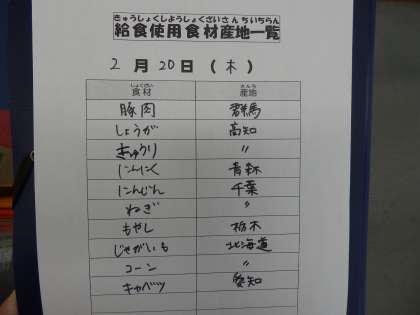 きゅうしょくしようしょくざいさんちいちらん
給食使用食材産地一覧
2 月 20 日 ( 木 )
しょくざい さんち
食材 産地
豚肉 群馬
しょうが 高知
きゅうり 〃
にんにく 青森
にんじん 千葉
ねぎ 〃
もやし 栃木
じゃがいも 北海道
コーン 〃
キャベツ 愛知